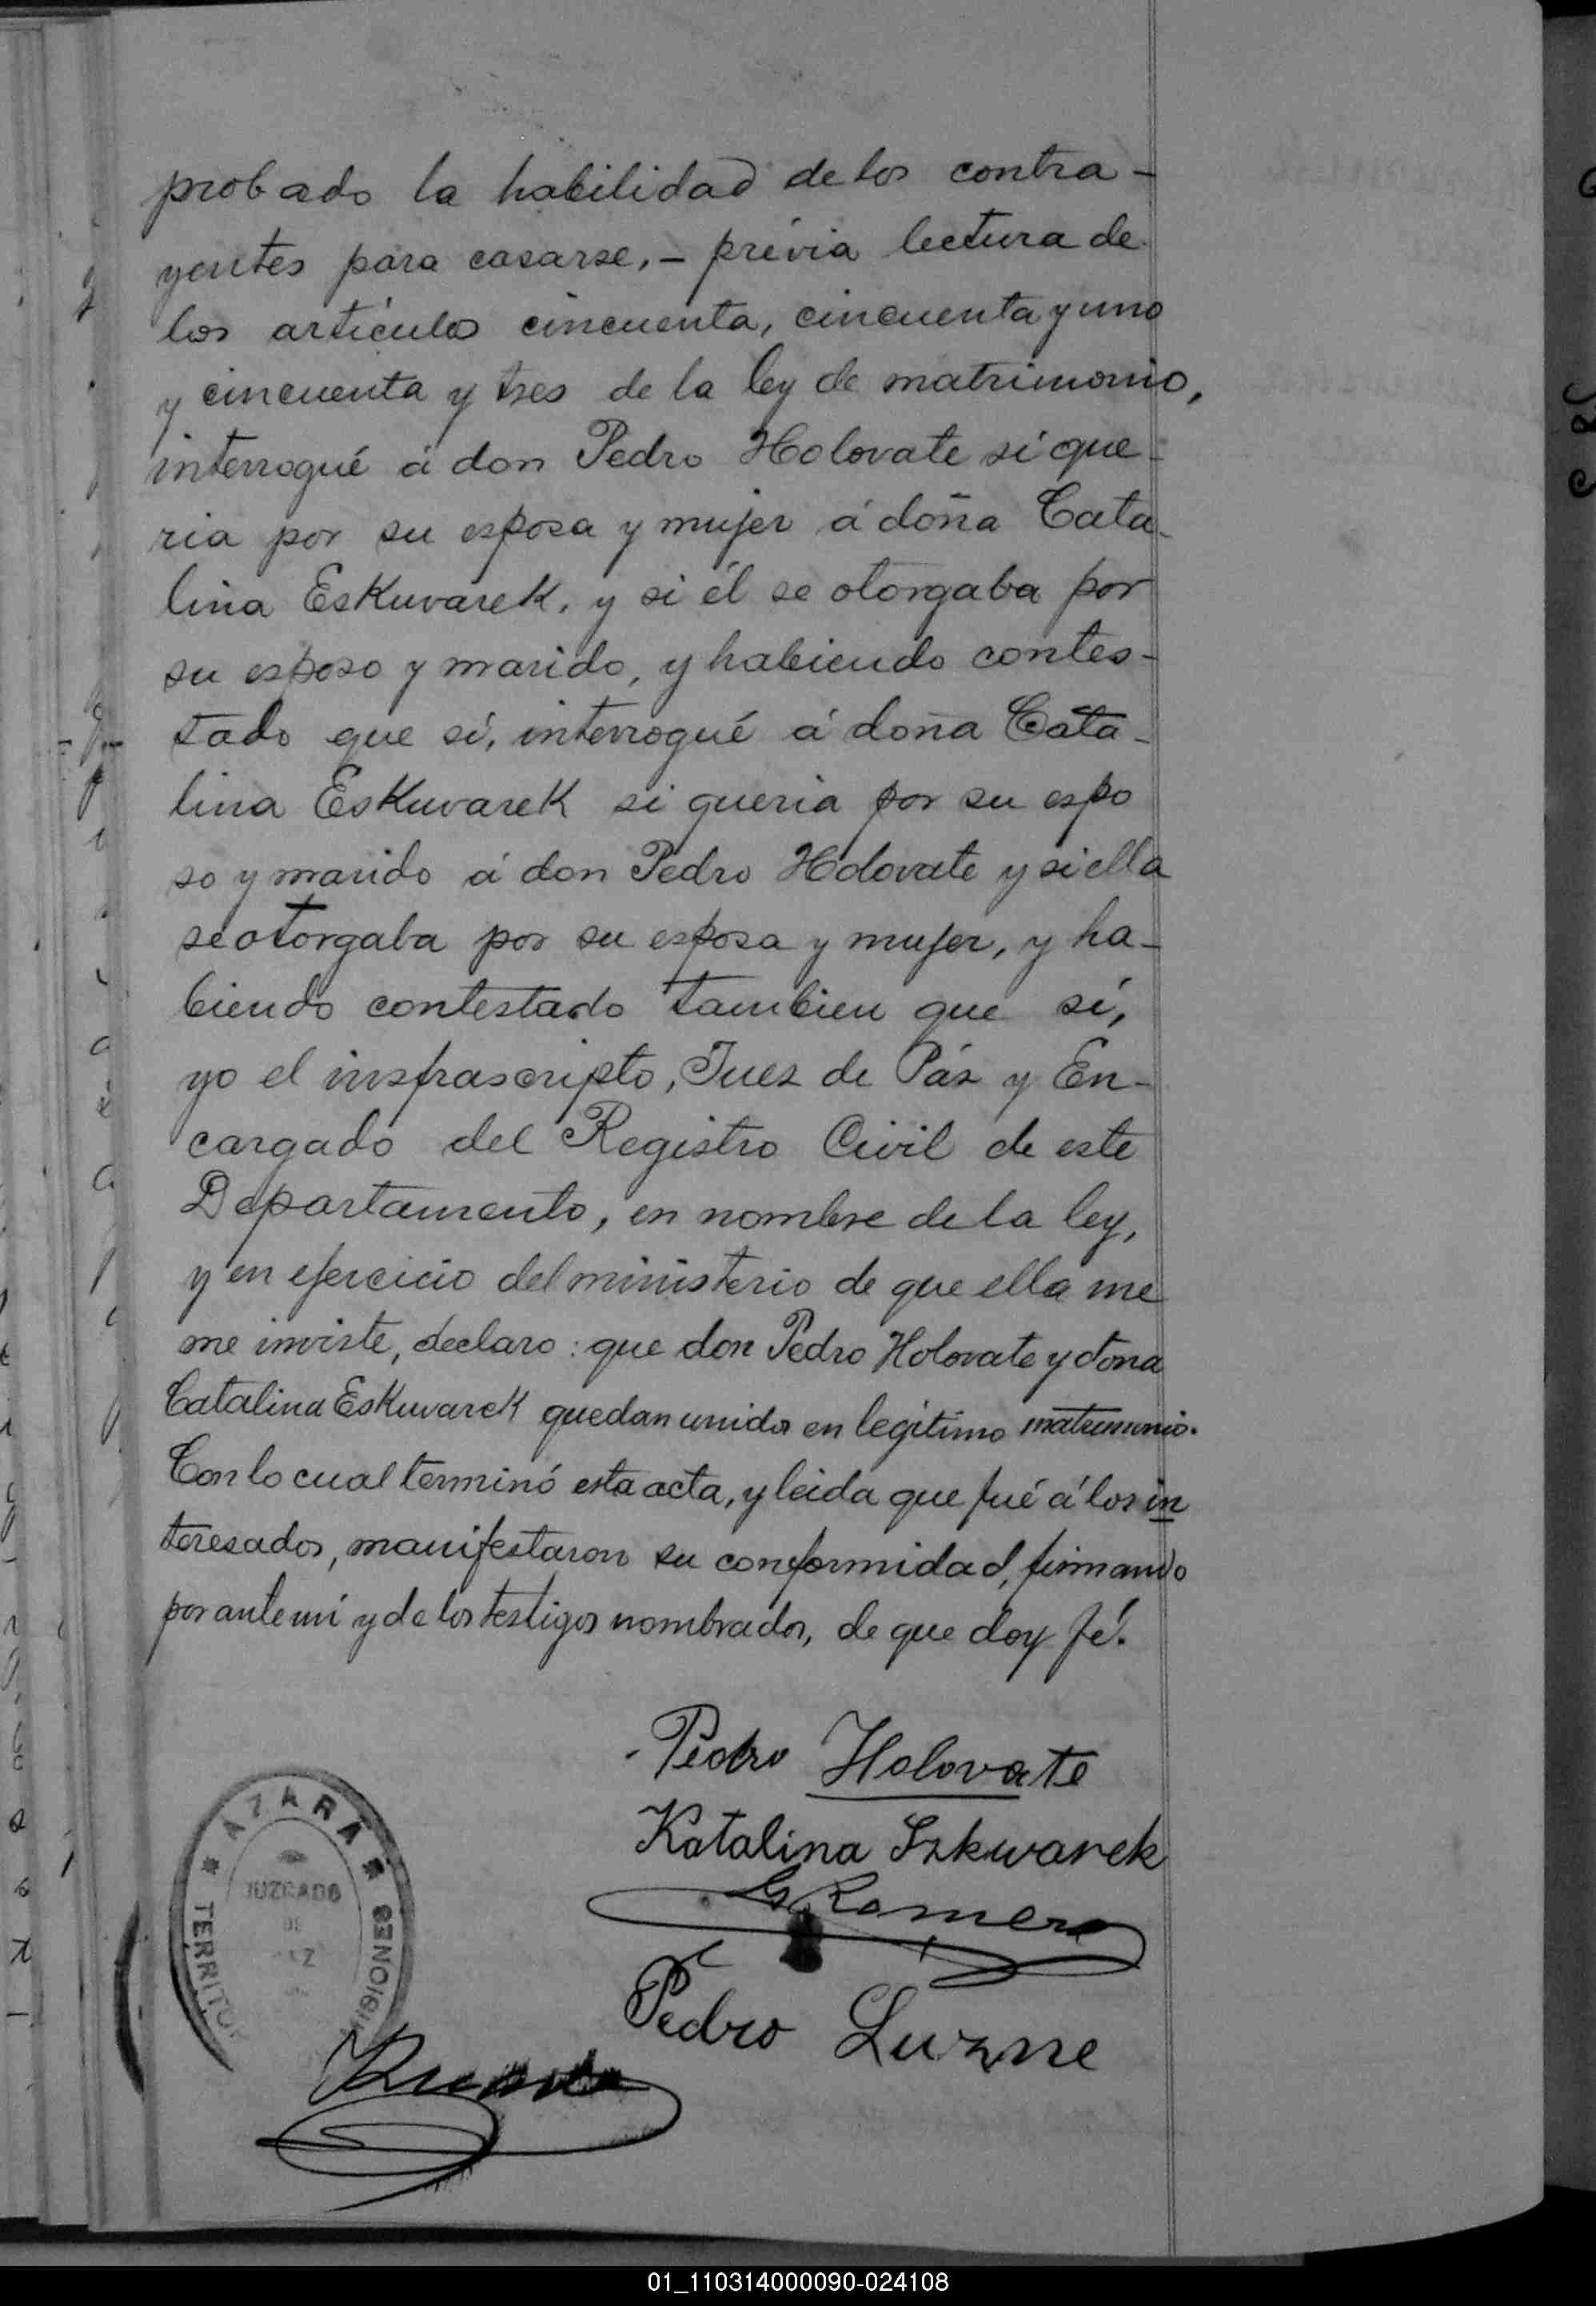 probado la habilidad de los contra-
yentes para casarse, - prévia lectura de
los artículos cincuenta, cincuenta y uno
y cincuenta y tres de la ley de matrimonio,
interrogué á don Pedro Holovate si que-
ria por su esposa y mujer á doña Cata-
lina Eskuvarek, y si él se otorgaba por
su esposo y marido, y habiendo contes-
tado que sí, interrogué á doña Cata-
lina Eskuvarek si queria por su espo
so y marido á don Pedro Holovate y si ella
se otorgaba por su esposa y mujer, y ha-
biendo contestado tambien que sí,
yo el insfrascripto, Juez de Páz y En-
cargado del Registro Civil de este
Departamento, en nombre de la ley,
y en ejercicio del ministerio de que ella me
me inviste, declaro: que don Pedro Holovate y doña
Catalina Eskuvarek quedan unidos en legítimo matrimonio.
Con lo cual terminó esta acta, y leida que fué á los in
teresados, manifestaron su conformidad, firmando
por ante mí y de los testigos nombrados, de que doy fé.
Pedro Holovate
Katalina Szkwarek
G Romero
Pedro Luzne
AZARA
JUZGADO
TERRITO
MISIONES
01_110314000090-024108